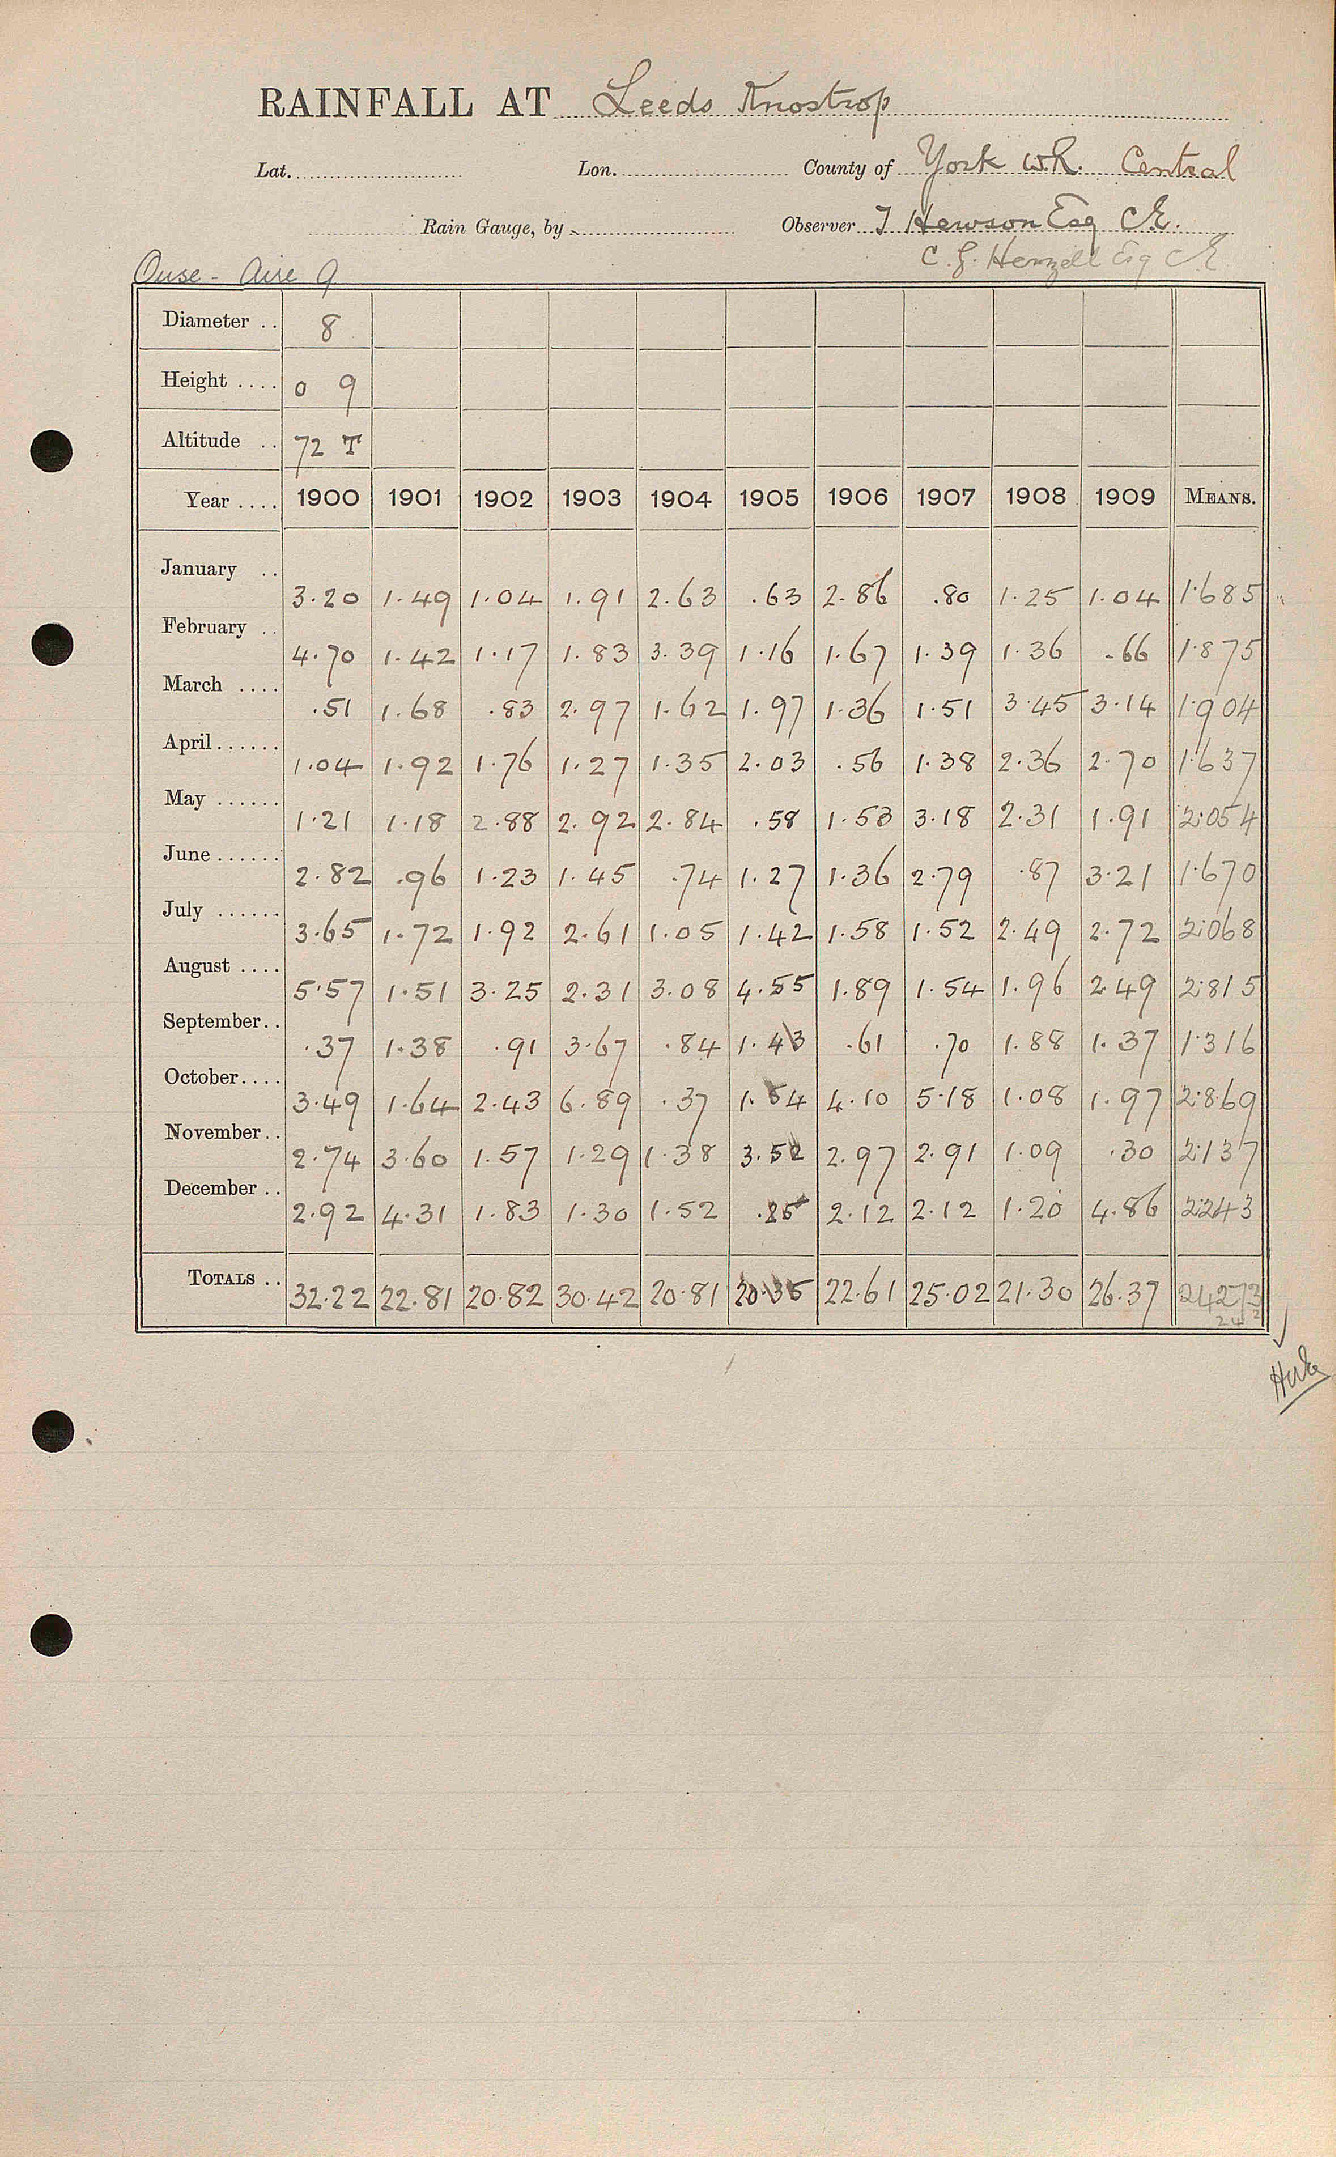 RAINFALL AT Leeds Knostrop
Lat. Lon. County of York W.R. Central
Rain Gauge, by Observer T Hewson Esq C.E.
C. G. Henzell Esq C.E.
Ouse - Aire 9
Diameter .. 8
Height .... 0 9
Altitude .. 72 T
Year .... 1900 1901 1902 1903 1904 1905 1906 1907 1908 1909 MEANS.
January .. 3.20 1.49 1.04 1.91 2.63 .63 2.86 .80 1.25 1.04 1.685
February .. 4.70 1.42 1.17 1.83 3.39 1.16 1.67 1.39 1.36 .66 1.875
March .... .51 1.68 .83 2.97 1.62 1.97 1.36 1.51 3.45 3.14 1.904
April ...... 1.04 1.92 1.76 1.27 1.35 2.03 .56 1.38 2.36 2.70 1.637
May ...... 1.21 1.18 2.88 2.92 2.84 .58 1.53 3.18 2.31 1.91 2.054
June ...... 2.82 .96 1.23 1.45 .74 1.27 1.36 2.79 .87 3.21 1.670
July ...... 3.65 1.72 1.92 2.61 1.05 1.42 1.58 1.52 2.49 2.72 2.068
August .... 5.57 1.51 3.25 2.31 3.08 4.55 1.89 1.54 1.96 2.49 2.815
September.. .37 1.38 .91 3.67 .84 1.43 .61 .70 1.88 1.37 1.316
October.... 3.49 1.64 2.43 6.89 .37 1.54 4.10 5.18 1.08 1.97 2.869
November.. 2.74 3.60 1.57 1.29 1.38 3.52 2.97 2.91 1.09 .30 2.137
December .. 2.92 4.31 1.83 1.30 1.52 .25 2.12 2.12 1.20 4.86 2.243
TOTALS .. 32.22 22.81 20.82 30.42 20.81 20.35 22.61 25.02 21.30 26.37 24.273